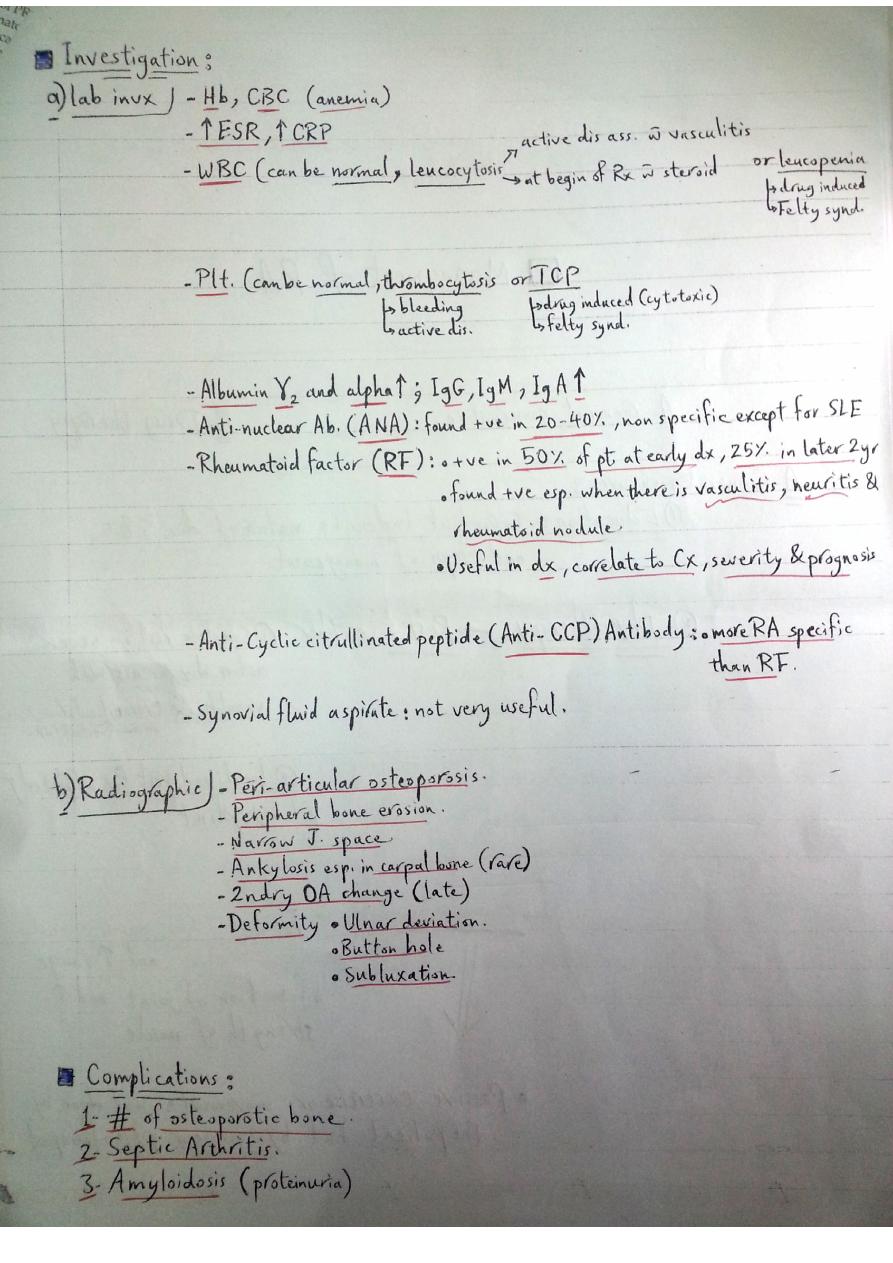 Investigation:
a) lab invx - Hb, CBC (anemia)
- ↑ESR, ↑CRP
- WBC (can be normal, leucocytosis ↗ active dis ass. w̄ vasculitis
→ at begin of Rx w̄ steroid
or leucopenia
↳ drug induced
↳ Felty synd.
- Plt. (can be normal, thrombocytosis or TCP
↳ bleeding ↳ drug induced (cytotoxic)
↳ active dis. ↳ felty synd.
- Albumin γ₂ and alpha↑; IgG, IgM, IgA↑
- Anti-nuclear Ab. (ANA): found +ve in 20-40%, non specific except for SLE
- Rheumatoid factor (RF): • +ve in 50% of pt at early dx, 25% in later 2yr
• found +ve esp. when there is vasculitis, neuritis &
rheumatoid nodule.
• Useful in dx, correlate to Cx, severity & prognosis
- Anti-Cyclic citrullinated peptide (Anti-CCP) Antibody: • more RA specific
than RF.
- Synovial fluid aspirate: not very useful.
b) Radiographic - Peri-articular osteoporosis.
- Peripheral bone erosion.
- Narrow J. space
- Ankylosis esp. in carpal bone (rare)
- 2ndry OA change (late)
- Deformity • Ulnar deviation.
• Button hole
• Subluxation.
Complications:
1- # of osteoporotic bone.
2- Septic Arthritis.
3- Amyloidosis (proteinuria)